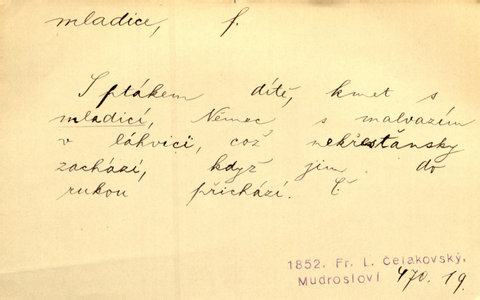 mladice, f.
S ptákem dítě, kmet s
mladicí, Němec s malvazím
v láhvici, což nekřesťansky
zachází, když jim do
rukou přichází. Č.
1852. Fr. L. Čelakovský,
Mudrosloví 470.19.